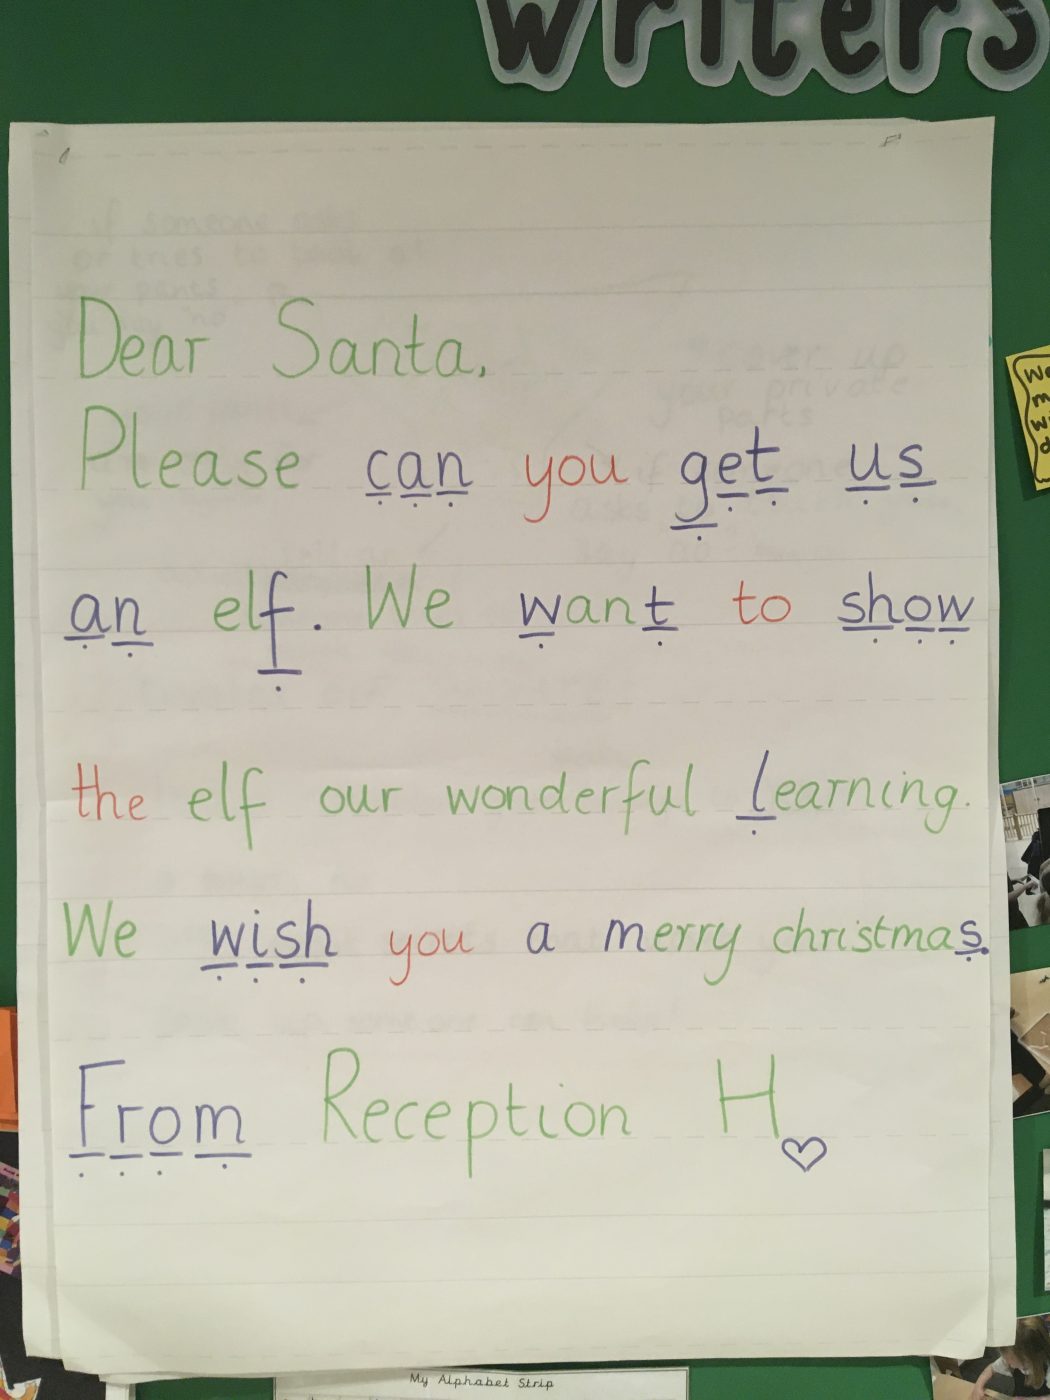 writers
Dear Santa,
Please can you get us
an elf. We want to show
the elf our wonderful learning.
We wish you a merry christmas.
From Reception H
My Alphabet Strip